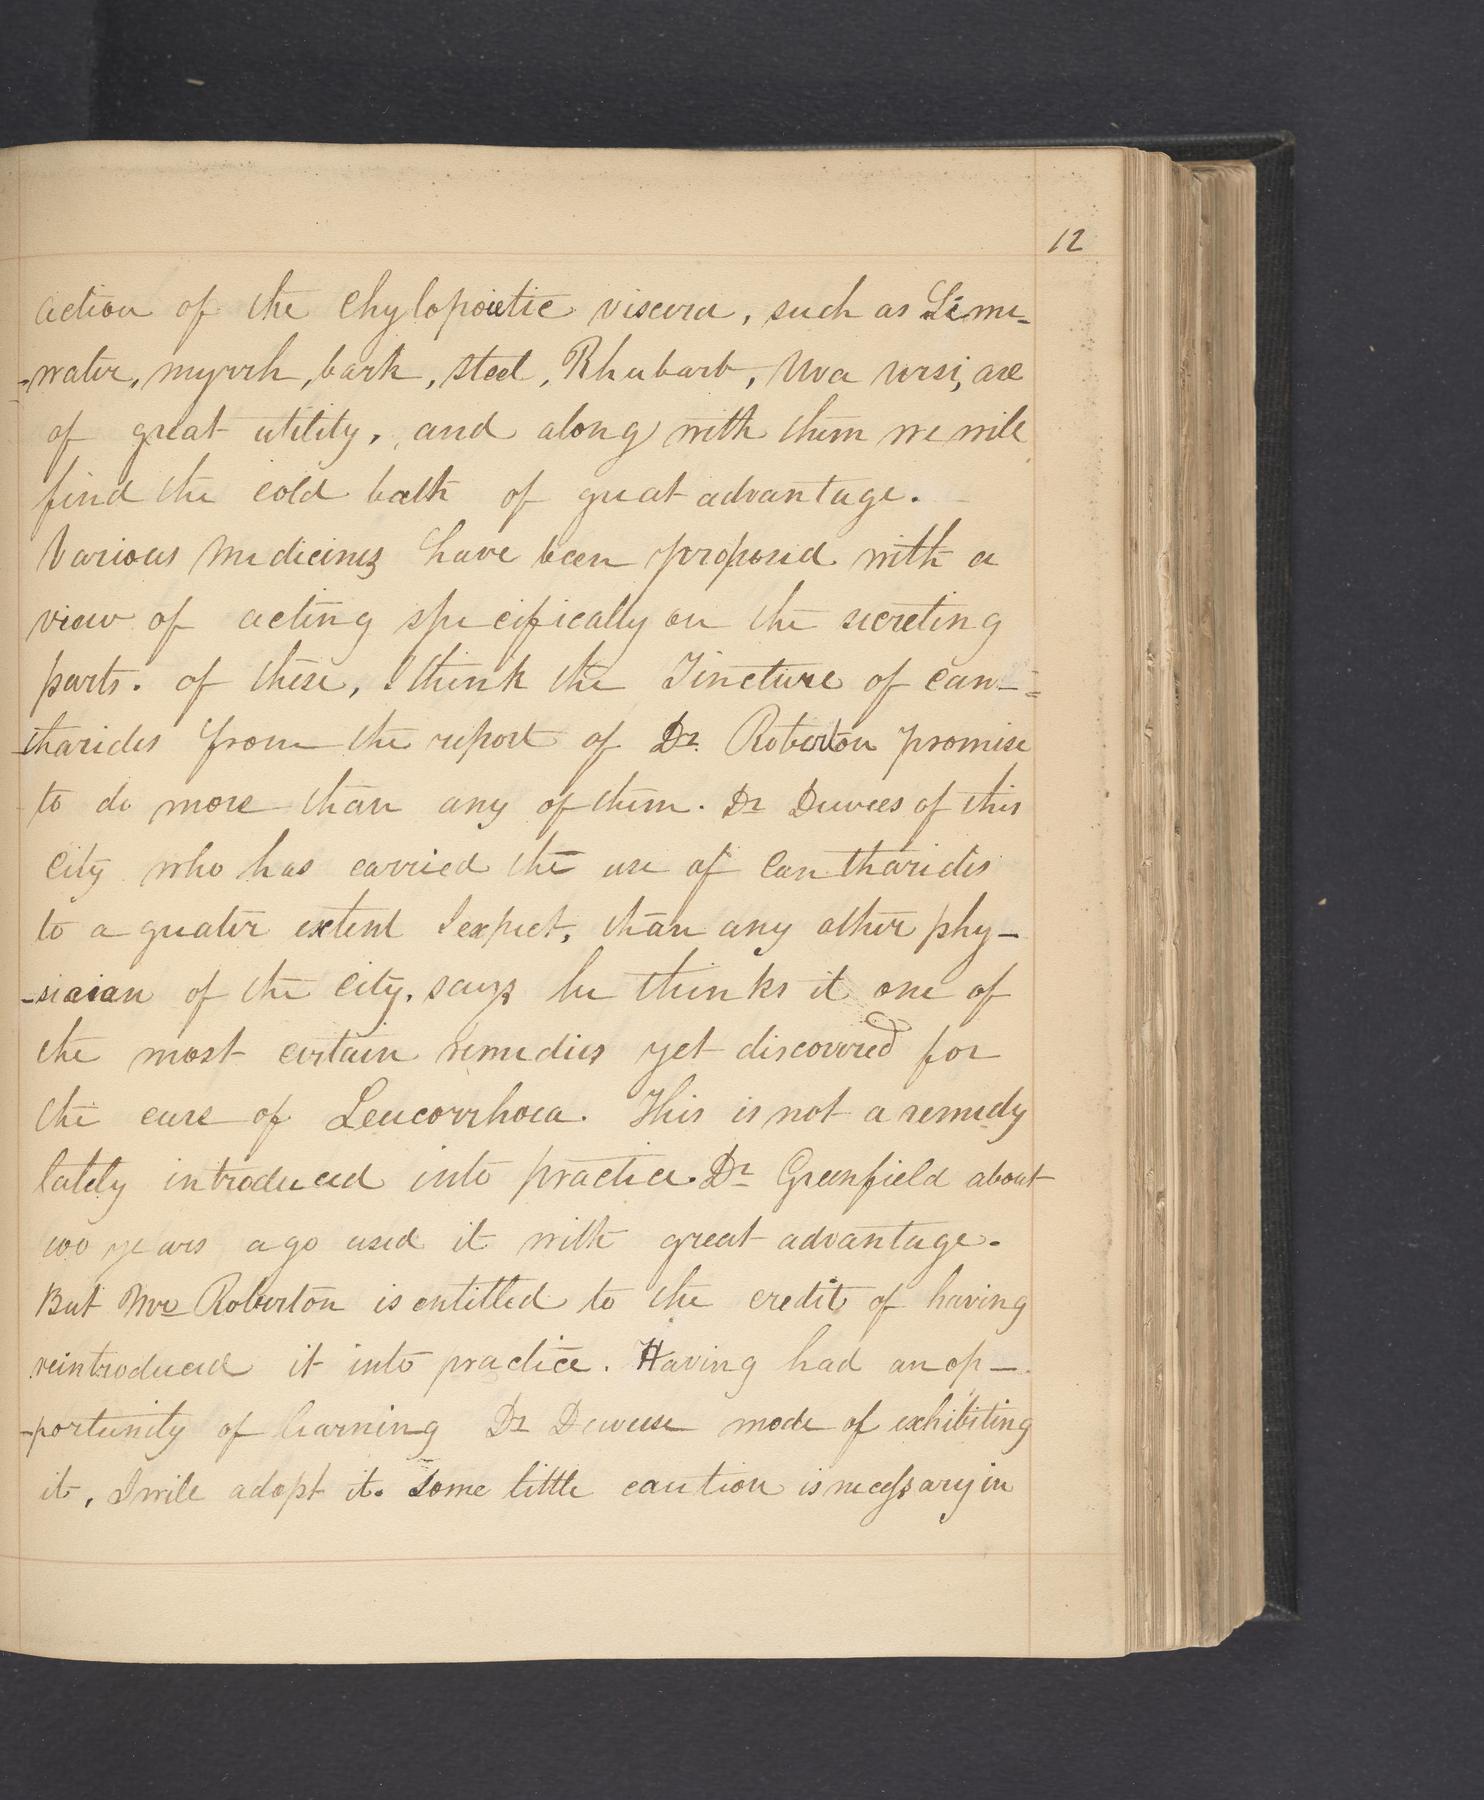 12
action of the chylopoietic viscera, such as Lime-
-water, myrrh, bark, steel, Rhubarb, Uva ursi, are
of great utility, and along with them we will
find the cold bath of great advantage.
Various medicines have been proposed with a
view of acting specifically on the secreting
parts. of these, I think the Tincture of can-
-tharides from the report of Dr. Roberton promise
to do more than any of them. Dr Dewees of this
city who has carried the use of Cantharides
to a greater extent I expect, than any other phy-
-sician of the city, says he thinks it one of
the most certain remedies yet discovered for
the cure of Leucorrhoea. This is not a remedy
lately introduced into practice. Dr Greenfield about
100 years ago used it with great advantage.
But Mr Roberton is entitled to the credit of having
reintroduced it into practice. Having had an op-
-portunity of learning Dr Deweese mode of exhibiting
it, I will adopt it. Some little caution is necessary in